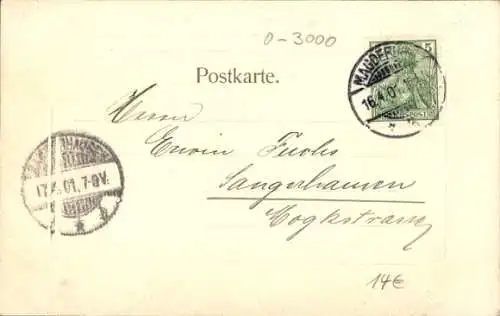 0-3000
5
MAGDEBURG
16.4.01
Postkarte.
Herrn
Erwin Fuchs
SANGERHAUSEN
17.4.01. 7-8V.
Sangerhausen
Mogkstrasse
14€